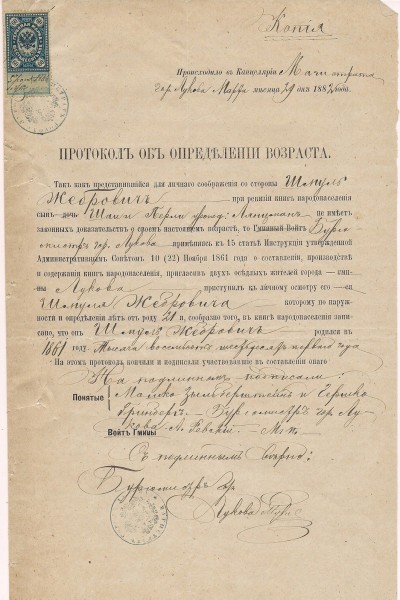 Копія
Происходило въ Канцеляріи Магистрата
гор. Лукова Марта мѣсяца 29 дня 1882 года.
ПРОТОКОЛЪ ОБЪ ОПРЕДѢЛЕНІИ ВОЗРАСТА.
Такъ какъ представившійся для личнаго соображенія со стороны Шмуль
Жебровичъ при ревизіи книгъ народонаселенія
сынъ-дочь Шаи и Перли урожд. не имѣетъ
законныхъ доказательствъ о своемъ настоящемъ возрастѣ, то Гминный Войтъ Бурго-
мистръ гор. Лукова примѣняясь къ 15 статьѣ Инструкціи утвержденной
Административнымъ Совѣтомъ 10 (22) Ноября 1861 года о составленіи, производствѣ
и содержаніи книгъ народонаселенія, пригласивъ двухъ осѣдлыхъ жителей города — гми-
ны Лукова приступилъ къ личному осмотру его — ей
Шмуля Жебровича которому по наруж-
ности опредѣлили лѣтъ отъ роду 21 и, сообразно того, въ книгѣ народонаселенія запи-
сано, что онъ Шмуль Жебровичъ родился въ
1861 году. Тысяча восемьсотъ шестьдесятъ перваго года
На этомъ протоколъ кончили и подписали участвованіе въ составленіи онаго
На подлинномъ подписали:
Понятые Мошко и
Гринбергъ. — Бургомистръ гор. Лу-
кова М.П.
Войтъ Гмины
Съ подлиннымъ вѣрно:
Бургомистръ гор.
Лукова